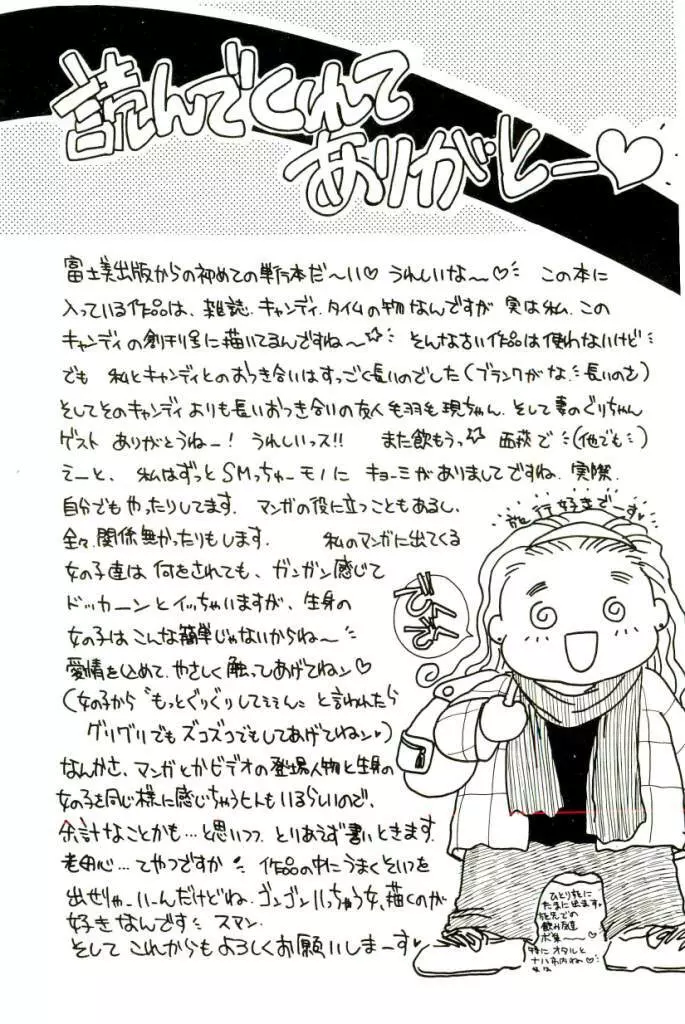 読んでくれて
ありがとー♡
富士美出版からの初めての単行本だ〜い♡ うれしいな〜♡ この本に
入っている作品は、雑誌.キャンディ.タイムの物なんですが 実は私.この
キャンディの創刊号に描いてるんですね〜☆ そんな古い作品は使わないけど
でも 私とキャンディとのおつき合いはすっごく長いのでした(ブランクがな.長いのさ)
そしてそのキャンディよりも長いおつき合いの友人 毛羽毛現ちゃん.そして妻のぐりちゃん
ゲスト ありがとうねー! うれしいっス!! また飲もうっ☆ 西荻で(他でも)
えーと、私はずっとSMっちゅーモノに キョーミがありましてですね.実際.
自分でもやったりしてます. マンガの役に立つこともあるし、
全々.関係無かったりもします. 私のマンガに出てくる
女の子達は 何をされても、ガンガン感じて
ドッカーンとイッちゃいますが、生身の
女の子は こんな簡単じゃないからね〜
愛情を込めて.やさしく触ってあげてねン♡
(女の子から〝もっとぐりぐりしてェェん〟と言われたら
グリグリでもズコズコでもしてあげてねン♡)
なんかさ、マンガとかビデオの登場人物と生身の
女の子を同じ様に感じちゃうヒトもいるらしいので、
余計なことかも…と思いつつ とりあえず書いときます.
老婆心…てやつですか 作品の中にうまくそいつを
出せりゃいーんだけどね. ゴンゴンいっちゃう女.描くのが
好きなんです スマン.
そして これからもよろしくお願いしまーす♡
旅行好きでーす♡
ひとり旅に
たまに出ます.
旅先での
飲み友達
ボ集〜♡
特に オタルと